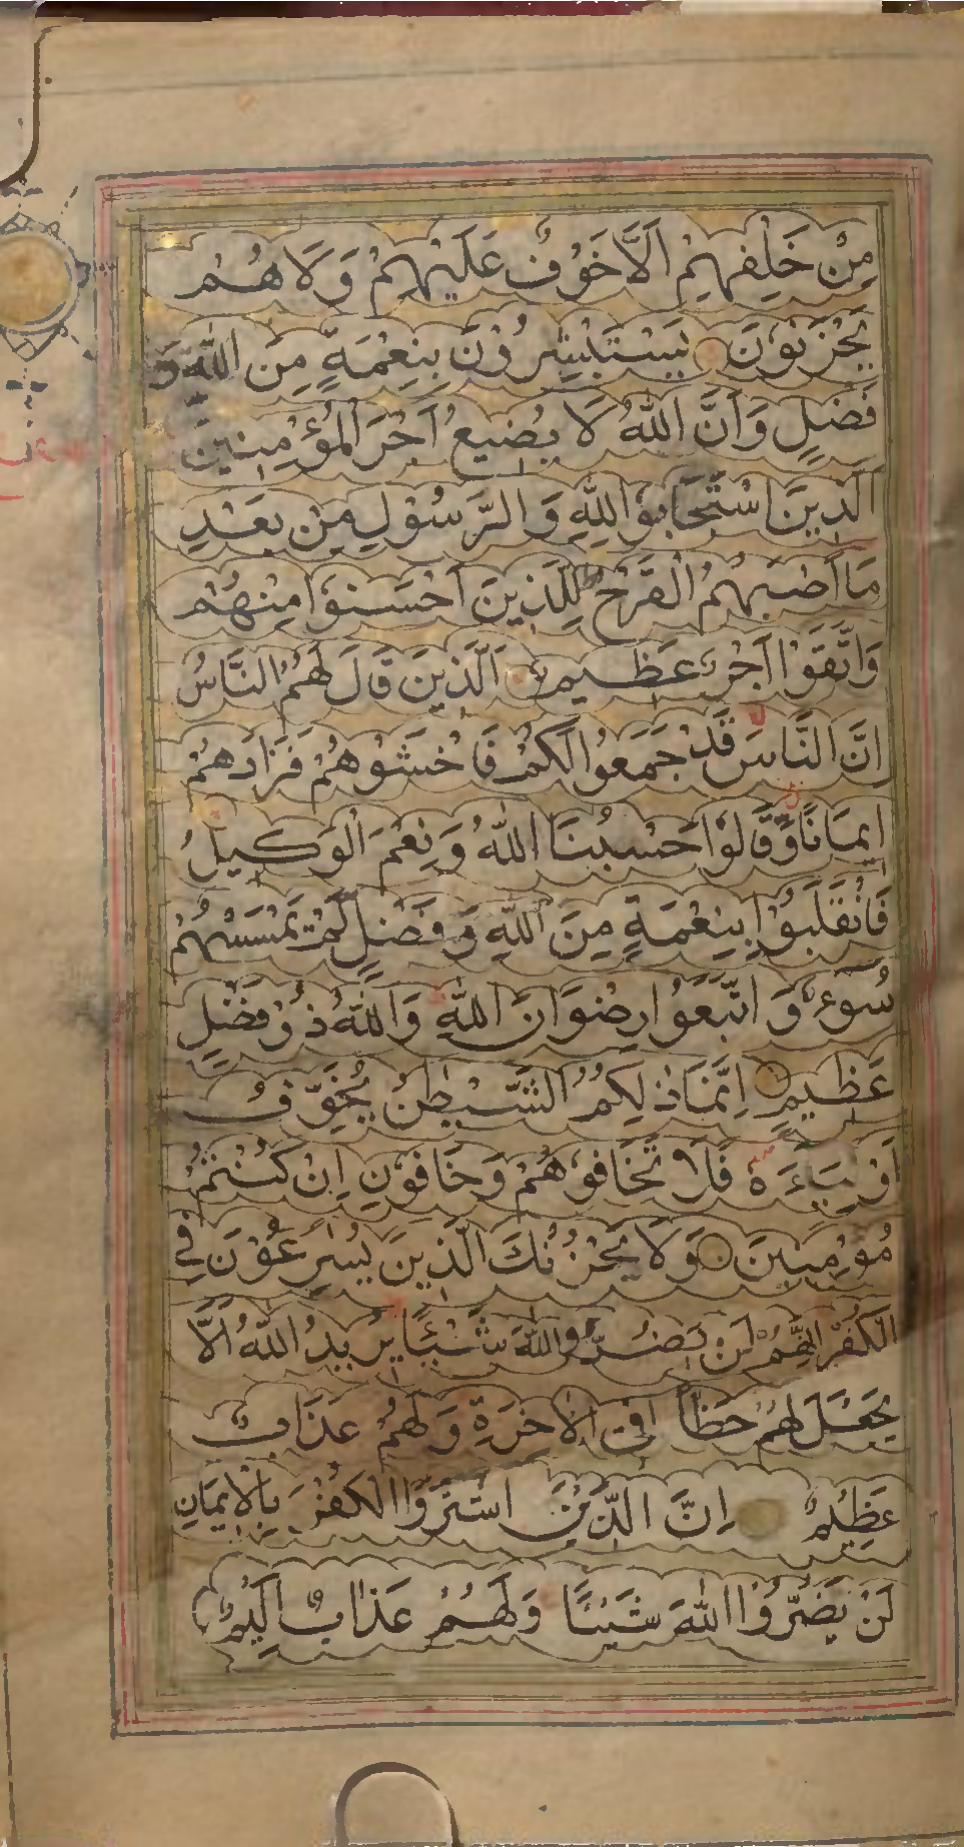 مِنْ خَلْفِهِمْ اَلَّا خَوْفٌ عَلَيْهِمْ وَلَا هُمْ
يَحْزَنُوْنَ يَسْتَبْشِرُوْنَ بِنِعْمَةٍ مِنَ اللّٰهِ وَ
فَضْلٍ وَاَنَّ اللّٰهَ لَا يُضِيعُ اَجْرَ الْمُؤْمِنِينَ
الَّذِينَ اسْتَجَابُوْا لِلّٰهِ وَالرَّسُوْلِ مِنْ بَعْدِ
مَا اَصٰبَهُمُ الْقَرْحُ لِلَّذِينَ اَحْسَنُوْا مِنْهُمْ
وَاتَّقَوْا اَجْرٌ عَظِيمٌ اَلَّذِينَ قَالَ لَهُمُ النَّاسُ
اِنَّ النَّاسَ قَدْ جَمَعُوْا لَكُمْ فَاخْشَوْهُمْ فَزَادَهُمْ
اِيمَانًا وَّقَالُوْا حَسْبُنَا اللّٰهُ وَنِعْمَ الْوَكِيلُ
فَانْقَلَبُوْا بِنِعْمَةٍ مِنَ اللّٰهِ وَفَضْلٍ لَمْ يَمْسَسْهُمْ
سُوْءٌ وَاتَّبَعُوْا رِضْوَانَ اللّٰهِ وَاللّٰهُ ذُوْ فَضْلٍ
عَظِيمٍ اِنَّمَا ذٰلِكُمُ الشَّيْطٰنُ يُخَوِّفُ
اَوْلِيَاءَهُ فَلَا تَخَافُوْهُمْ وَخَافُوْنِ اِنْ كُنْتُمْ
مُؤْمِنِينَ وَلَا يَحْزُنْكَ الَّذِينَ يُسٰرِعُوْنَ فِي
الْكُفْرِ اِنَّهُمْ لَنْ يَضُرُّوا اللّٰهَ شَيْئًا يُرِيدُ اللّٰهُ اَلَّا
يَجْعَلَ لَهُمْ حَظًّا فِي الْاٰخِرَةِ وَلَهُمْ عَذَابٌ
عَظِيْمٌ اِنَّ الَّذِيْنَ اشْتَرَوُا الْكُفْرَ بِالْاِيمَانِ
لَنْ يَضُرُّوا اللّٰهَ شَيْئًا وَلَهُمْ عَذَابٌ اَلِيْمٌ